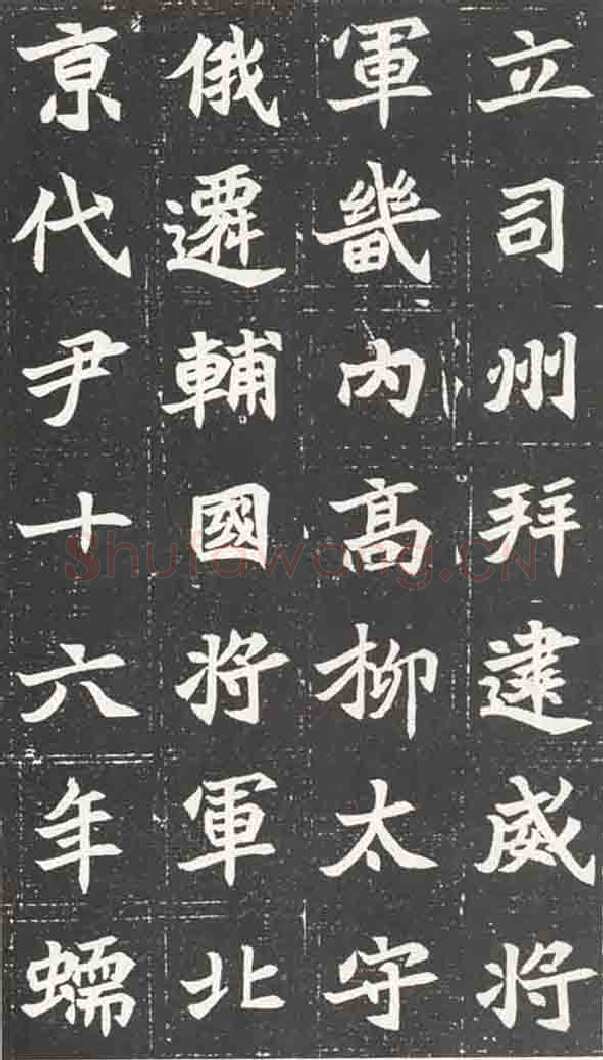 立司州拜建威将
軍畿内髙柳太守
俄遷輔國将軍北
亰代尹十六年蠕
Shufawang.CN